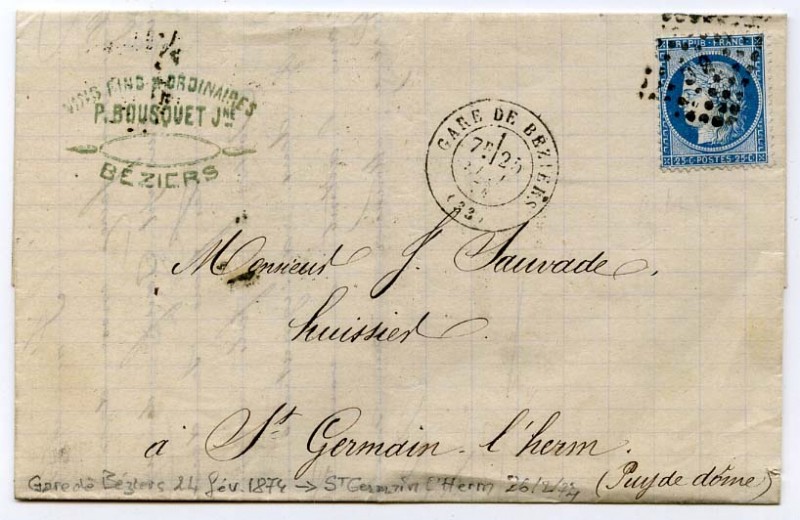 VINS FINS & ORDINAIRES
P. BOUSQUET JNE
BÉZIERS
GARE DE BEZIERS
(33)
REPUB. FRANC.
25 C POSTES 25 C
Monsieur J. Sauvade.
huissier
à St Germain-l'herm.
(Puy de dôme)
Gare de Béziers 24 fév. 1874 → ST Germain l'Herm 26/2/74